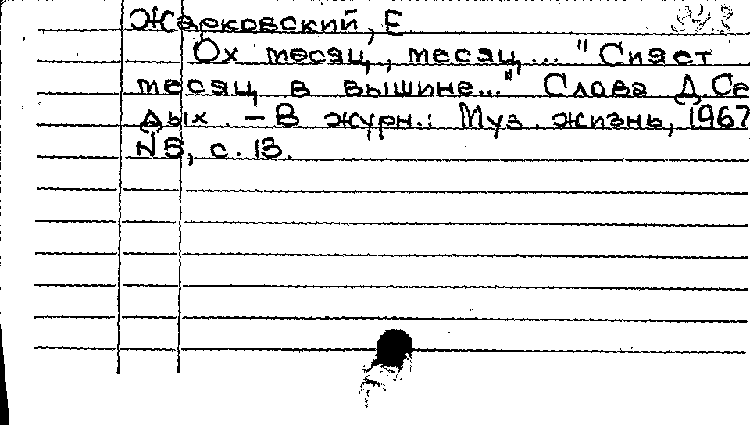 Жарковский, Е
Ох месяц, месяц... "Сияет
месяц в вышине..." Слова Д Се
дых. - В журн.: Муз. жизнь, 1967
№5, с. 13.